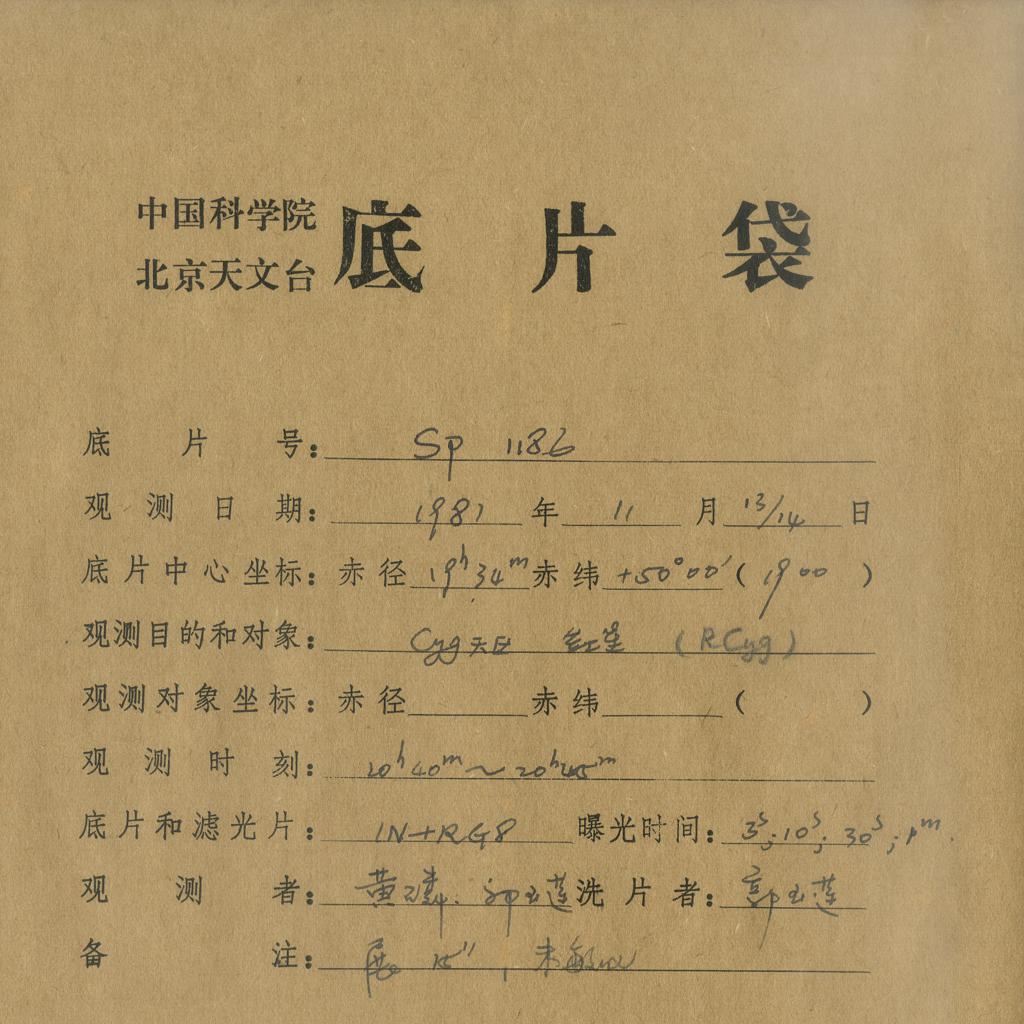 中国科学院
北京天文台 底片袋
底片号: Sp 1186
观测日期: 1981年11月13/14日
底片中心坐标: 赤径19ʰ34ᵐ赤纬+50°00′(1900)
观测目的和对象: Cyg天区 红星 (RCyg)
观测对象坐标: 赤径 赤纬 ( )
观测时刻: 20ʰ40ᵐ~20ʰ45ᵐ
底片和滤光片: IN+RG8 曝光时间: 3ˢ;10ˢ;30ˢ;1ᵐ.
观测者: 黄磷.郭玉莲洗片者: 郭玉莲
备注: 展15″,未敏化